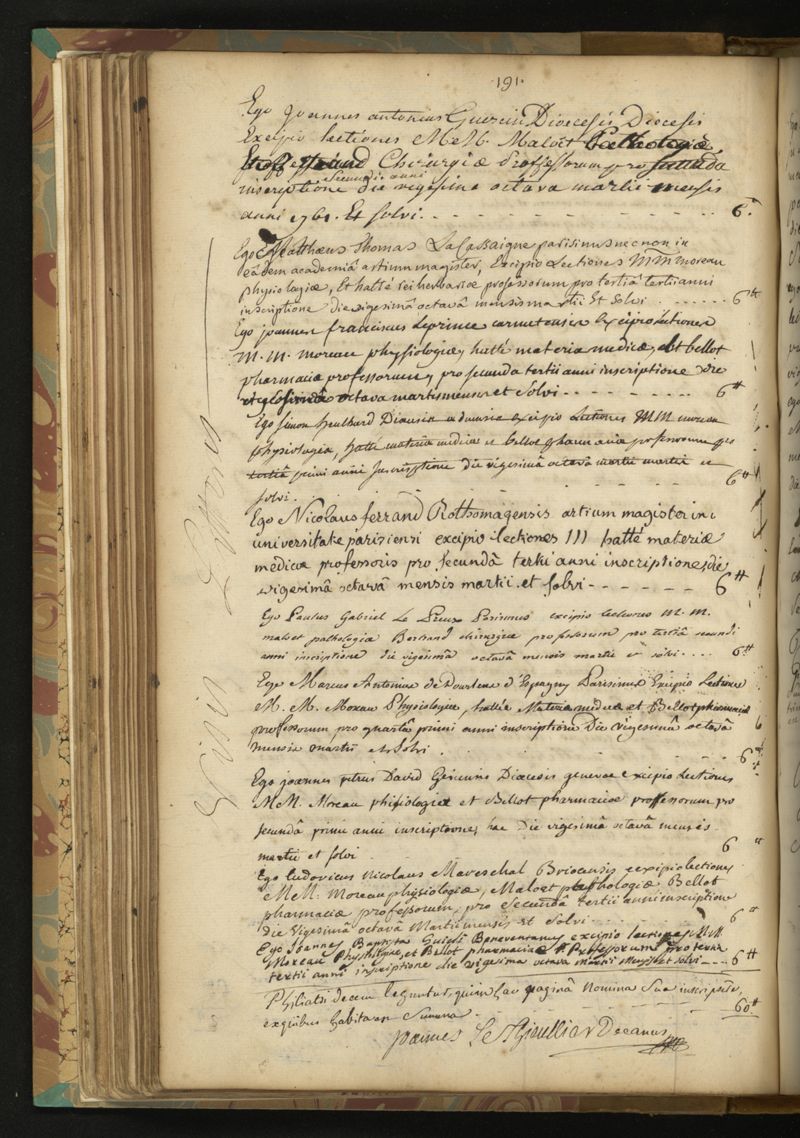 191.
Ego Joannes antonius Guerin Diœcesis Diœcesis
Excipio lectiones M et M. Maloët
Chirurgiæ Proffessorum pro
secundi anni
inscriptione die vigesima octava martii mensis
anni 1761. Et solvi. 6.
Ego Matthæus Thomas LaCassaigne parisinus nec non in
eâdem academiâ artium magister, Excipio Lectiones MM moreau
physiologiæ, Et hatté rei herbariæ professorum pro tertiâ tertii anni
inscriptione die vigesimâ octavâ mensis martii Et Solvi . . . . . . 6 tt
Ego joannes franciscus Leprince carnutensis Excipio Lectiones
M. M. moreau physiologiæ, hatté materiæ medicæ, et bellot
pharmaciæ professorum pro secunda tertii anni inscriptione die
octava martis mensis et solvi - - - - - - - 6 tt
Ego simon excipio Lectiones MM moreau
physiologiæ, hatté materiæ medicæ et bellot pharmaciæ professorum pro
tertiâ primi anni Inscriptione die vigesimâ octavâ martii martii et 6 tt
solvi.
Ego Nicolaus ferrand Rothomagensis artium magister in
universitate parisiensi excipio lectiones hatté materiæ
medicæ professoris pro secundâ tertii anni inscriptione, die
vigesimâ octavâ mensis martii et solvi - - - - - 6 tt
Ego Paulus Gabriel Le Preux Parisinus excipio lectiones M. M.
maloet pathologiæ Bertrand chirurgiæ professorum pro tertiâ secundi
anni inscriptione die vigesimâ octavâ mensis martii et solvi . . . . 6 tt
Ego Marcus Antonius de Dourlens d'Epagny Parisinus Excipio Lectiones
M. M. Moreau Physiologiæ, hattée Materiæ medicæ et Bellot pharmaciæ
professorum pro quartâ primi anni inscriptione Die vigesimâ octavâ
mensis martii et Solvi . 6 tt
Ego joannes petrus David Diœcesis genevæ excipio Lectiones
M et M. Moreau phisiologiæ et Bellot pharmaciæ proffessorum pro
secundâ primi anni inscriptione, hac Die vigesimâ octavâ mensis
martii et solvi . 6 tt
Ego Ludovicus Nicolaus Mareschal Briocensis excipio lectiones
M et M. Moreau physiologiæ, Maloet pathologiæ Bellot
pharmaciæ professorum, pro secundâ tertii anni inscriptione
die Vigesimâ octavâ Martii mensis et Solvi . . . . . 6 tt
Ego Joannes Baptista Guidi Beneventanus excipio lectiones M et M
Moreau Physiologiæ, et Bellot pharmaciæ Professorum pro tertia
tertii anni inscriptione die vigesima octava Martii Mensis et solvi - - - 6 tt
Philiatri decem leguntur, qui in hac paginâ Nomina sua inscripsere,
ex quibus habitæ Summa . 60 tt
Joannes Le Thieullier Decanus